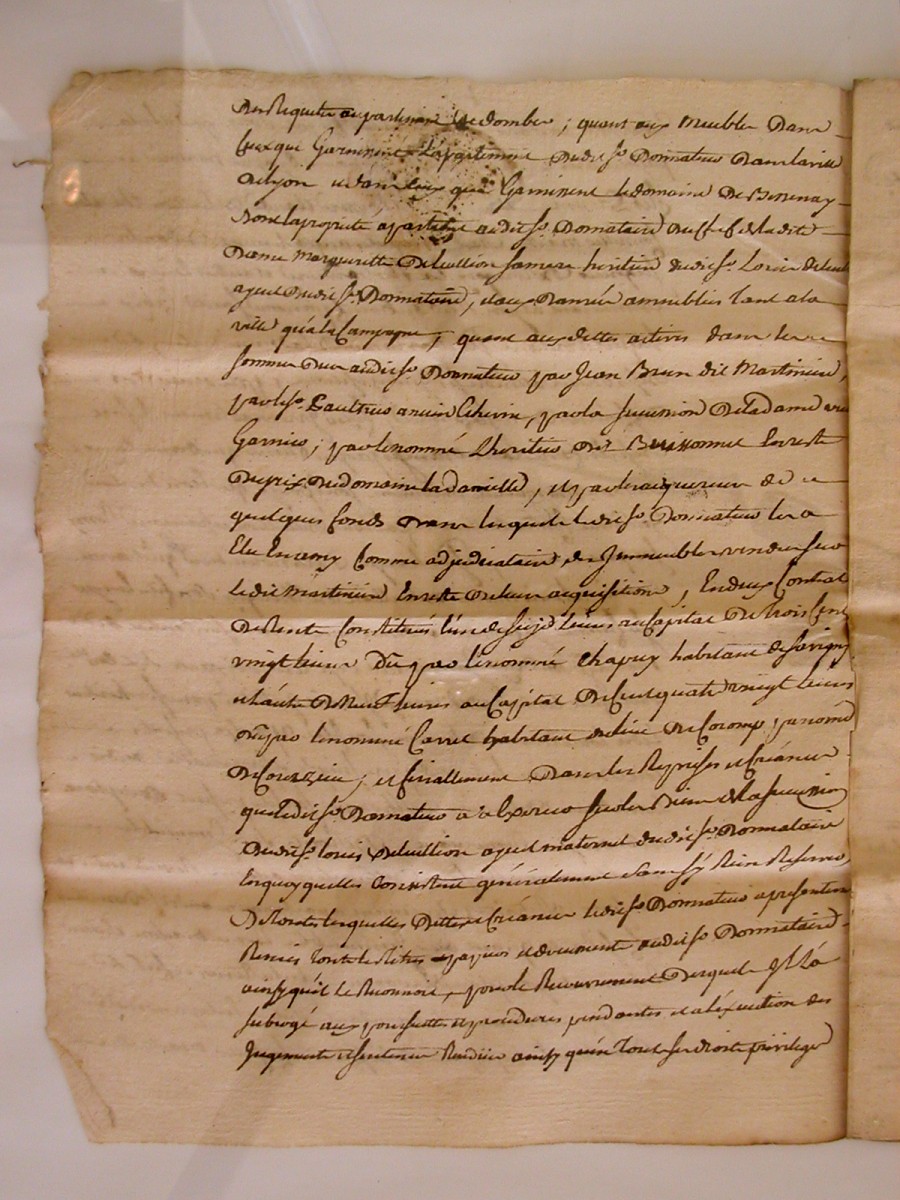 des Requetes au parlement de dombes ; quant aux meubles dans
ceux que Garnissent L'apartement dudit sr. Donnateur dans la ville
de lyon et dans ceux qui Garnissent le domaine de Bessenay
dont la proprieté apartient audit sr. Donnataire du chef de ladite
dame margueritte De
ayeul dudit sr. Donnataire, et aux danrées ameublies tant a la
ville qu'a la Campagne ; quant aux dettes actives dans les
sommes dues audit sr. Donnateur par Jean Brun dit Martiniere,
par le sr. ancien Echevin, par la succession de la dame
Garnier ; par le nommé L'heritier dit Buissonnet En reste
du prix du domaine , et par les acquereurs de
quelques fonds dans lesquels ledit sr. Donnateur les a
Elu En amy comme adjudicataire des Immeubles vendus sur
ledit Martiniere En reste de leur acquisition, En deux Contrats
de Rente Constituée l'un de seize livres au Capital de trois Cent
vingt livres dû par le nommé Chapuy habitant de savigny
et l'autre de neuf livres au Capital de Cent quatre vingt livres
dû par le nommé Carret habitant du lieu de
de Courzieu ; et finallement dans les Reprises et Créances
que ledit sr. Donnateur a a Exercer sur les Biens de la succession
dudit sr. louis ayeul maternel dudit sr. Donnataire
En quoy quelles Consistent généralement sans sy Rien Reserver
De toutes lesquelles Dettes et Créances ledit sr. Donnateur a presentement
Remis tous les titres papiers et documents audit sr. Donnataire
ainsy qu'il le Reconnoit, pour le Recouvrement desquels Il l'a
subrogé aux poursuittes et procedures pendantes et a l'éxécution des
Jugements et sentences Rendües ainsy qu'en tous ses droits privileges